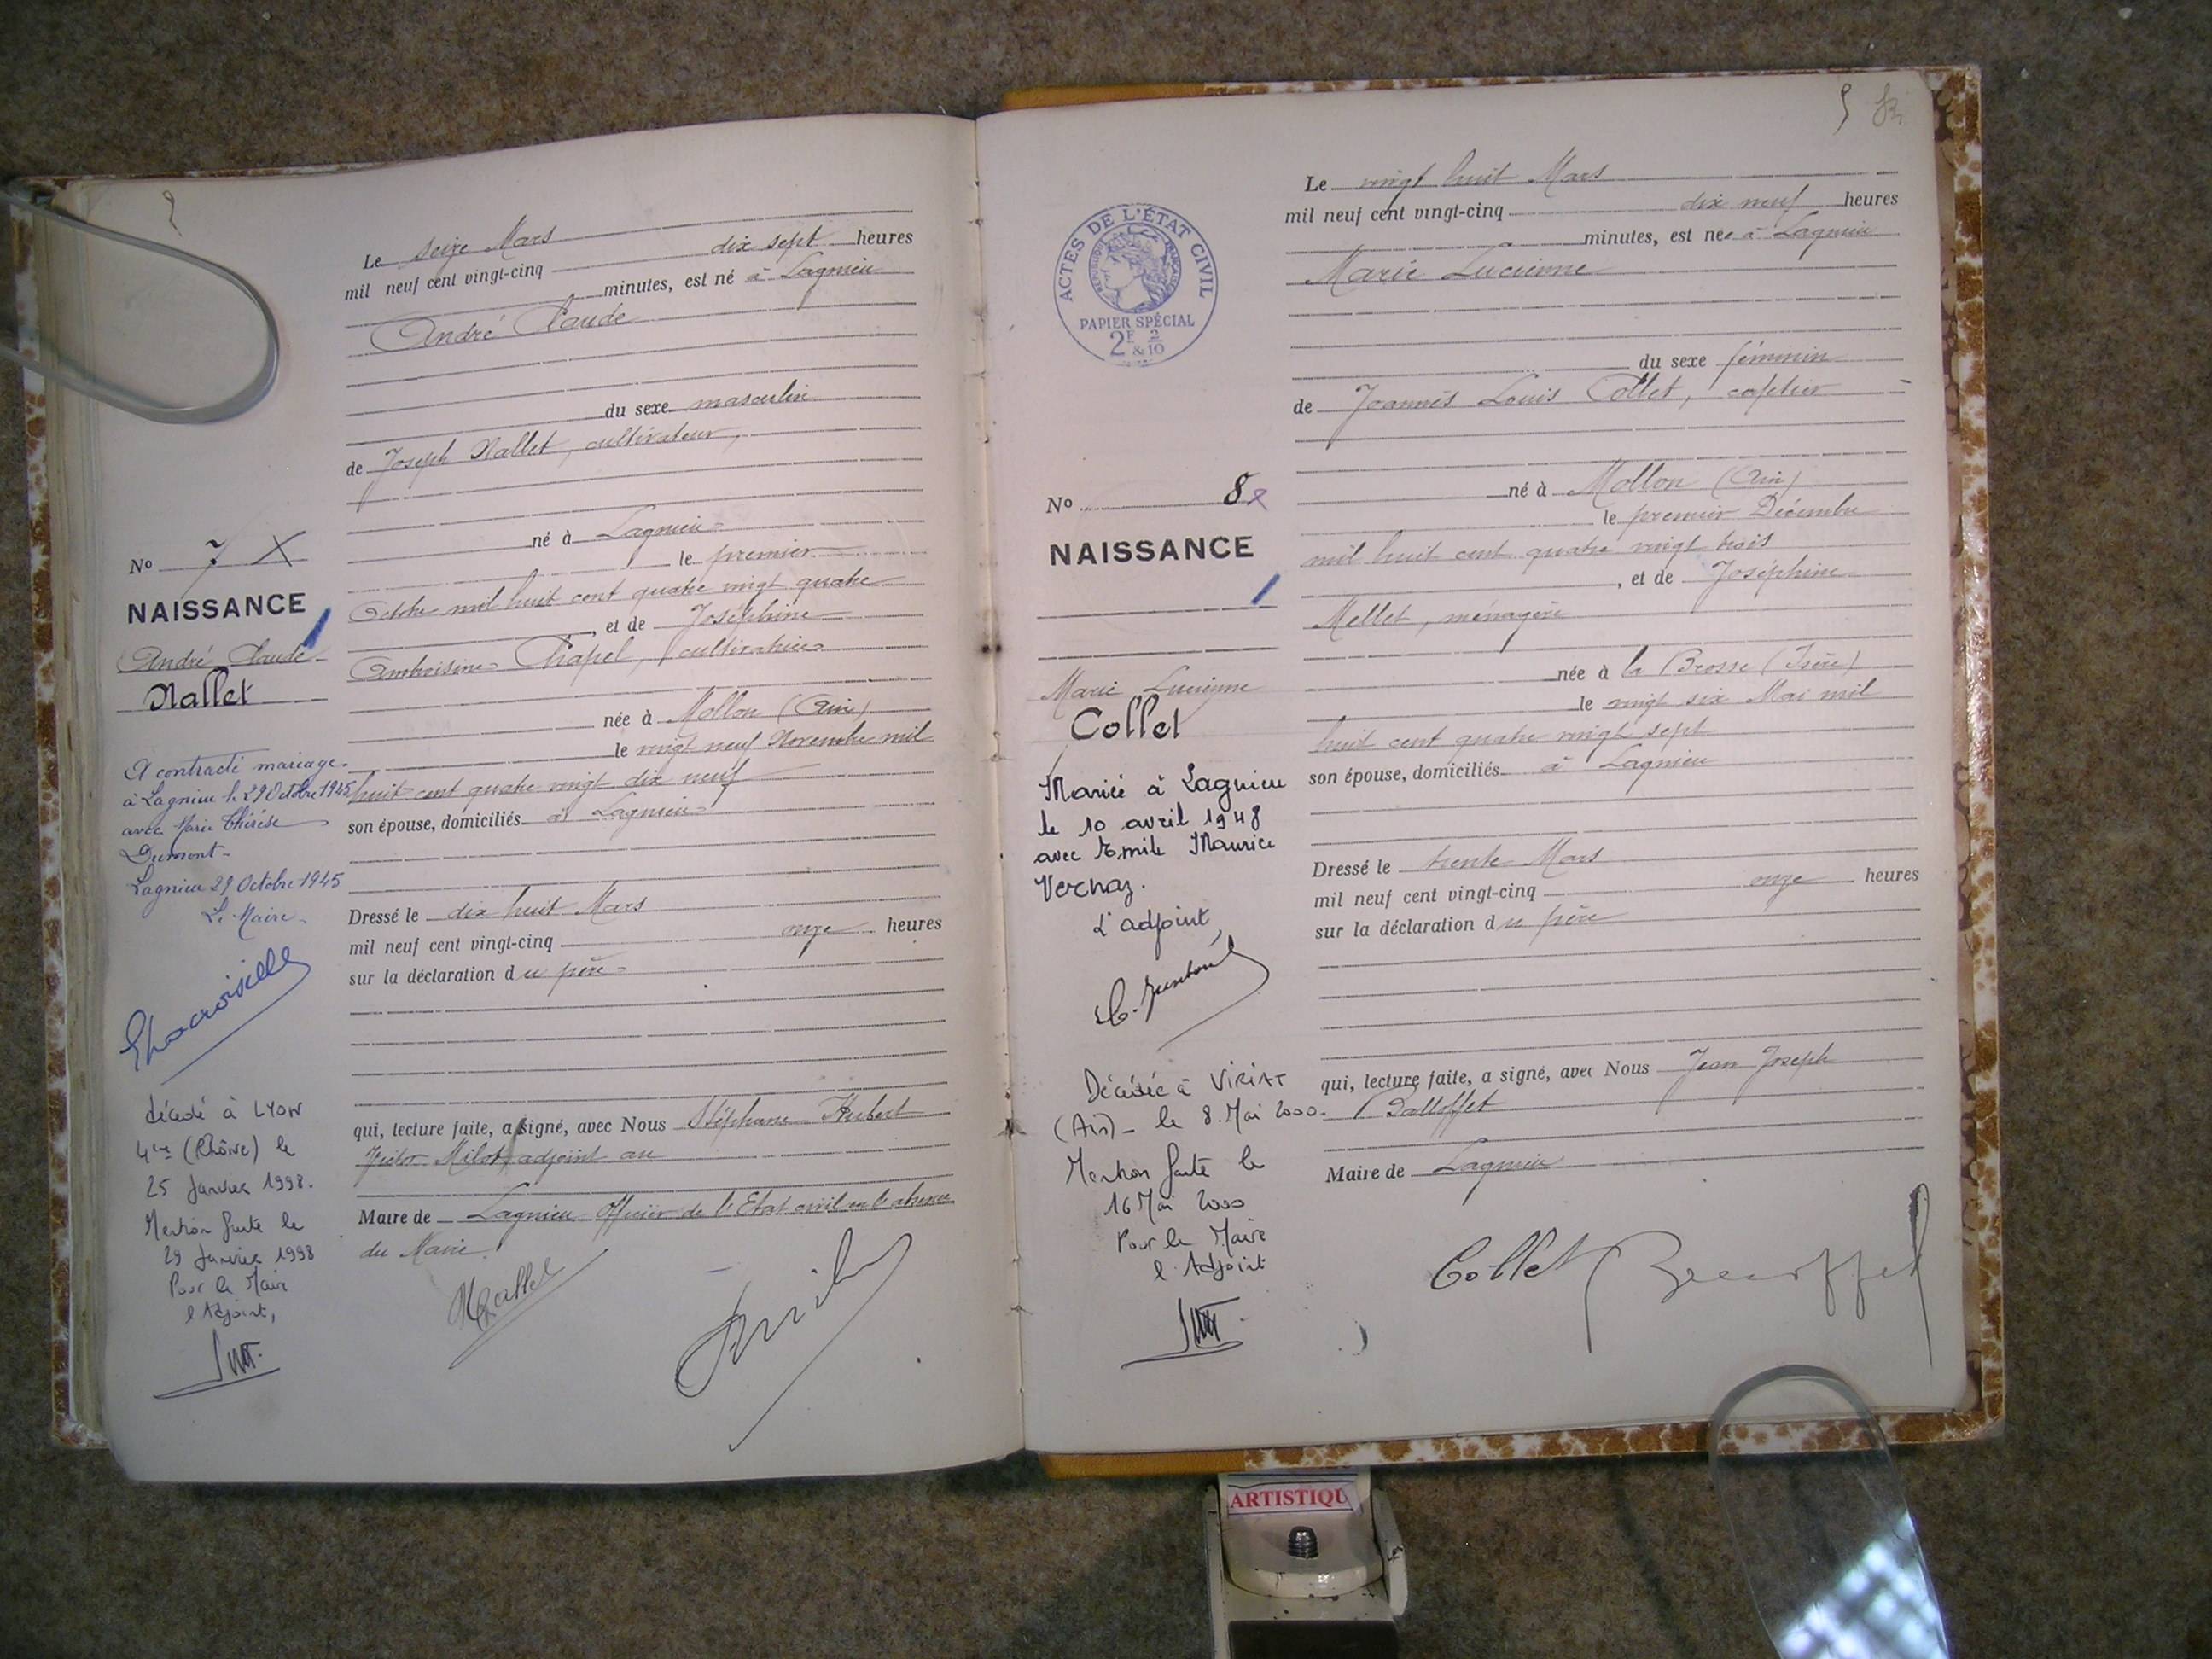 Le seize Mars
mil neuf cent vingt-cinq dix sept heures
minutes, est né à Lagnieu
André Claude
du sexe masculin
de Joseph Nallet, cultivateur,
né à Lagnieu
le premier
Octobre mil huit cent quatre vingt quatre
, et de Joséphine
Ambroisine Chapel, cultivatrice
née à Mollon (Ain)
le vingt neuf Novembre mil
huit cent quatre vingt dix neuf
son épouse, domiciliés à Lagnieu
Dressé le dix huit Mars
mil neuf cent vingt-cinq onze heures
sur la déclaration du père
qui, lecture faite, a signé, avec Nous Stéphane Hubert
Victor Milot, adjoint au
Maire de Lagnieu Officier de l'Etat civil en l'absence
du Maire.
No 7 X
NAISSANCE
André Claude
Nallet
A contracté mariage
à Lagnieu le 29 Octobre 1945
avec Marie Thérèse
Dumont
Lagnieu 29 Octobre 1945
Le Maire
décédé à LYON
4ème (Rhône) le
25 Janvier 1998.
Mention faite le
29 Janvier 1998
Pour le Maire
l'Adjoint,
Nallet
ACTES DE L'ÉTAT CIVIL
RÉPUBLIQUE FRANÇAISE
PAPIER SPÉCIAL
2F & 2/10
Le vingt huit Mars
mil neuf cent vingt-cinq dix neuf heures
minutes, est née à Lagnieu
Marie Lucienne
du sexe féminin
de Joannès Louis Collet, cafetier
né à Mollon (Ain)
le premier Décembre
mil huit cent quatre vingt trois
, et de Joséphine
Mellet, ménagère
née à la Brosse (Isère)
le vingt six Mai mil
huit cent quatre vingt sept
son épouse, domiciliés à Lagnieu
Dressé le trente Mars
mil neuf cent vingt-cinq onze heures
sur la déclaration du père
qui, lecture faite, a signé, avec Nous Jean Joseph
Balloffet
Maire de Lagnieu
Collet
No 8
NAISSANCE
Marie Lucienne
Collet
Mariée à Lagnieu
le 10 avril 1948
avec Emile Maurice
Vernaz.
L'adjoint,
Décédée à VIRIAT
(Ain) - le 8 Mai 2000.
Mention faite le
16 Mai 2000
Pour le Maire
l'Adjoint
ARTISTIQU